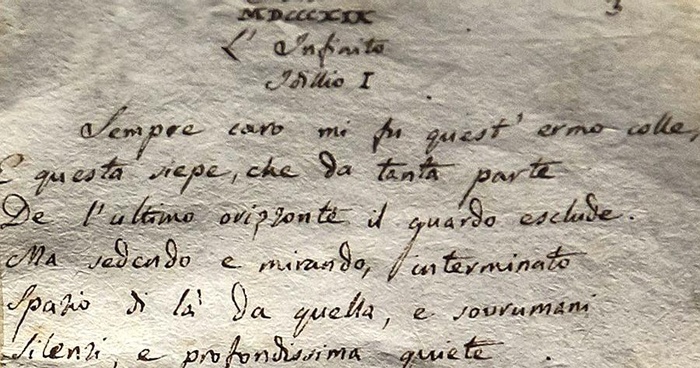 MDCCCXIX
3
L' Infinito
Idillio I
Sempre caro mi fu quest' ermo colle,
E questa siepe, che da tanta parte
De l'ultimo orizzonte il guardo esclude.
Ma sedendo e mirando, interminato
Spazio di là da quella, e sovrumani
Silenzi, e profondissima quiete